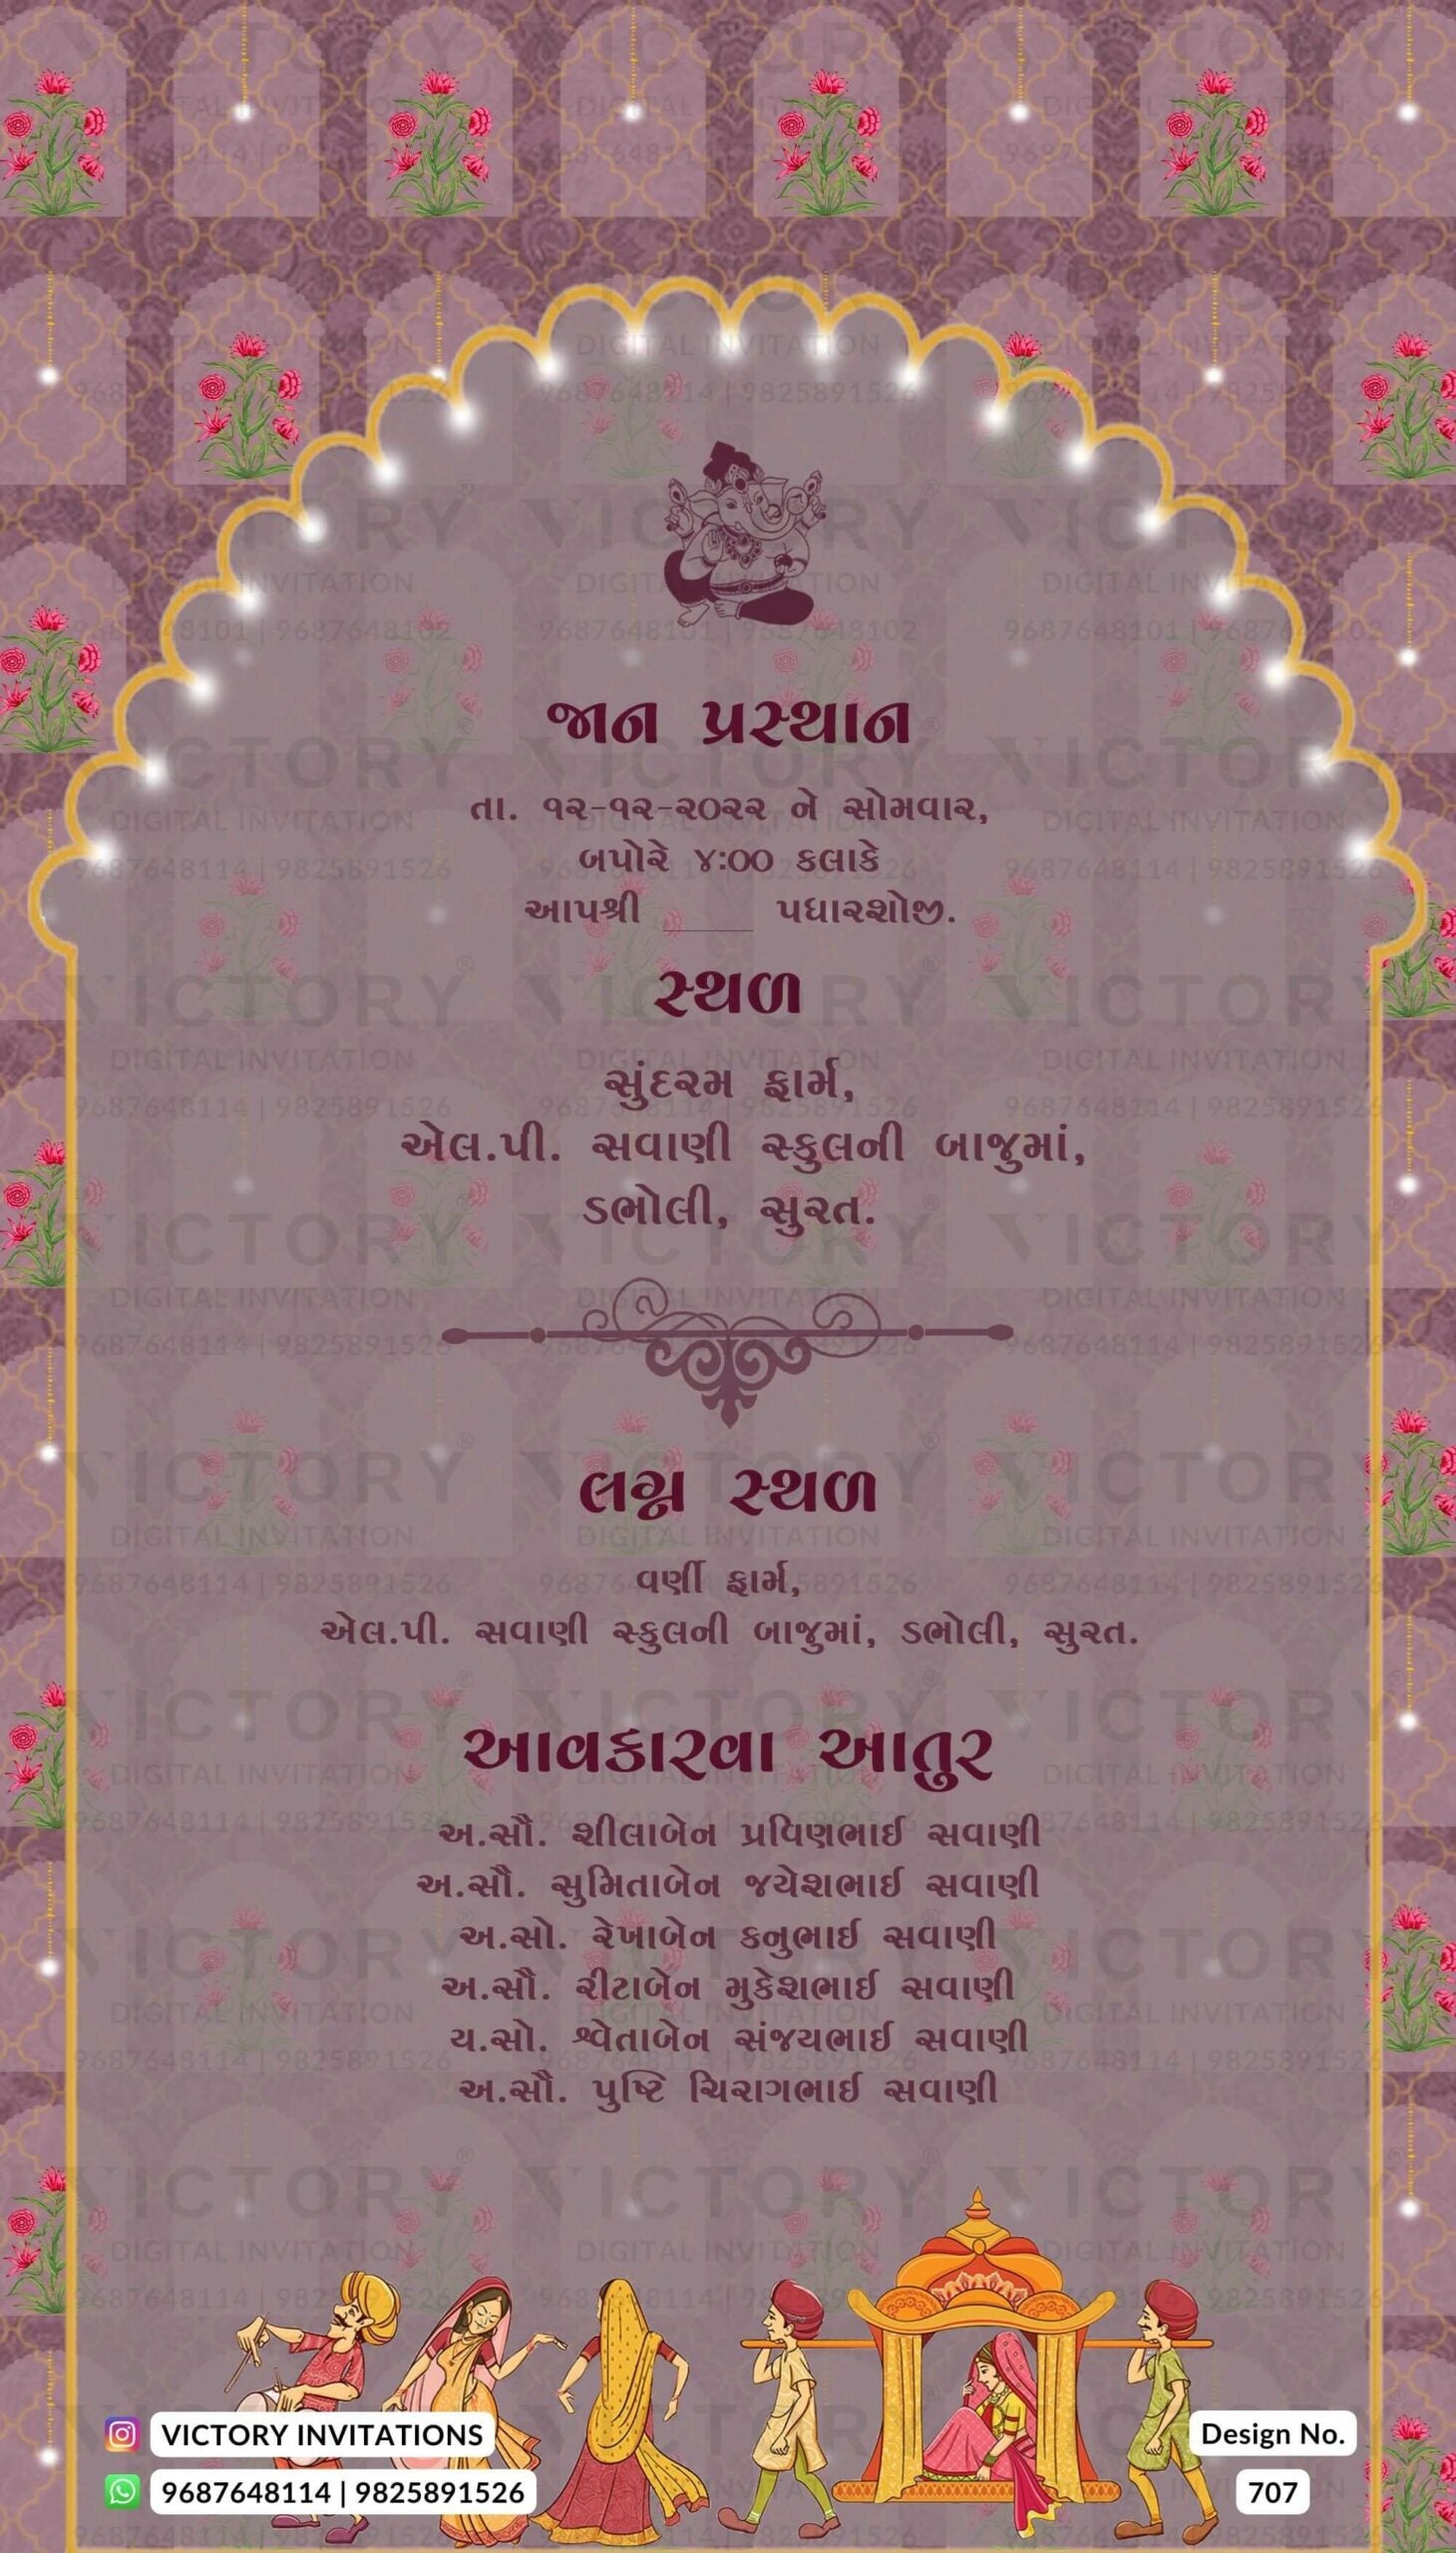 જાન પ્રસ્થાન
તા. ૧૨-૧૨-૨૦૨૨ ને સોમવાર,
બપોરે ૪:૦૦ કલાકે
આપશ્રી ______ પધારશોજી.
સ્થળ
સુંદરમ ફાર્મ,
એલ.પી. સવાણી સ્કુલની બાજુમાં,
ડભોલી, સુરત.
લગ્ન સ્થળ
વર્ણી ફાર્મ,
એલ.પી. સવાણી સ્કુલની બાજુમાં, ડભોલી, સુરત.
આવકારવા આતુર
અ.સૌ. શીલાબેન પ્રવિણભાઈ સવાણી
અ.સૌ. સુમિતાબેન જયેશભાઈ સવાણી
અ.સો. રેખાબેન કનુભાઈ સવાણી
અ.સૌ. રીટાબેન મુકેશભાઈ સવાણી
ચ.સો. શ્વેતાબેન સંજયભાઈ સવાણી
અ.સૌ. પુષ્ટિ ચિરાગભાઈ સવાણી
VICTORY INVITATIONS
9687648114 | 9825891526
Design No.
707